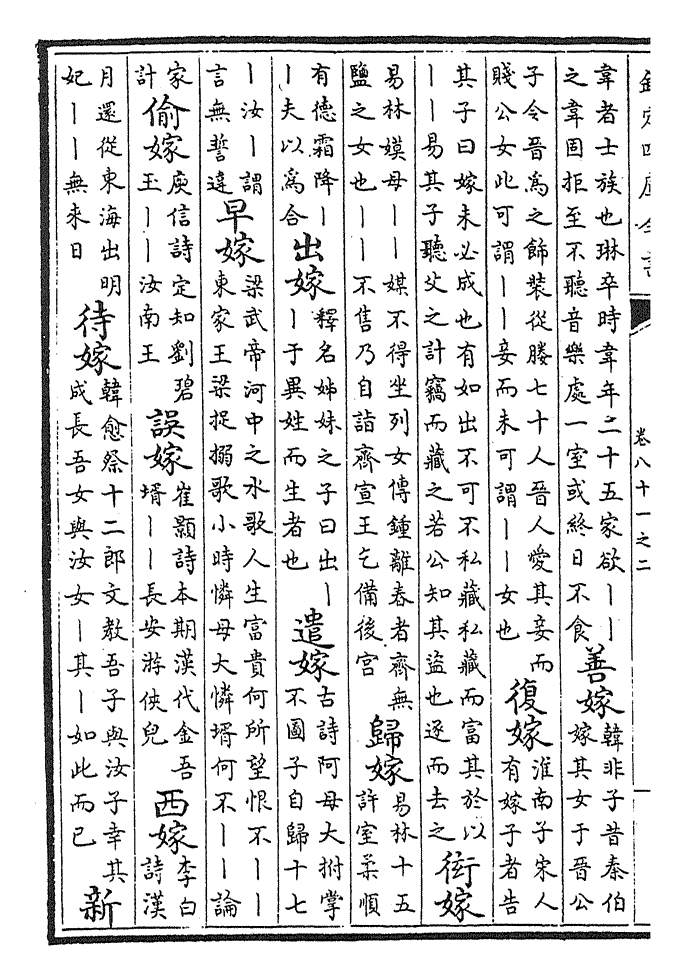 欽定四庫全書
卷八十一之二
韋者士族也琳卒時韋年二十五家欲丨丨
之韋固拒至不聽音樂處一室或終日不食
善嫁
韓非子昔秦伯
嫁其女于晉公
子令晉爲之飾裝從媵七十人晉人愛其妾而
賤公女此可謂丨丨妾而未可謂丨丨女也
復嫁
淮南子宋人
有嫁子者告
其子曰嫁未必成也有如出不可不私藏私藏而富其於以
丨丨易其子聽父之計竊而藏之若公知其盜也逐而去之
衒嫁
易林嫫母丨丨媒不得坐列女傳鍾離春者齊無
鹽之女也丨丨不售乃自詣齊宣王乞備後宮
歸嫁
易林十五
許室柔順
有德霜降丨
丨夫以爲合
出嫁
釋名姊妹之子曰出丨
丨于異姓而生者也
遣嫁
古詩阿母大拊掌
不圖子自歸十七
丨汝丨謂
言無誓違
早嫁
梁武帝河中之水歌人生富貴何所望恨不丨丨
東家王梁捉搦歌小時憐母大憐壻何不丨丨論
家
計
偷嫁
庾信詩定知劉碧
玉丨丨汝南王
誤嫁
崔顥詩本期漢代金吾
壻丨丨長安游俠兒
西嫁
李白
詩漢
月還從東海出明
妃丨丨無來日
待嫁
韓愈祭十二郎文教吾子與汝子幸其
成長吾女與汝女丨其丨如此而已
新